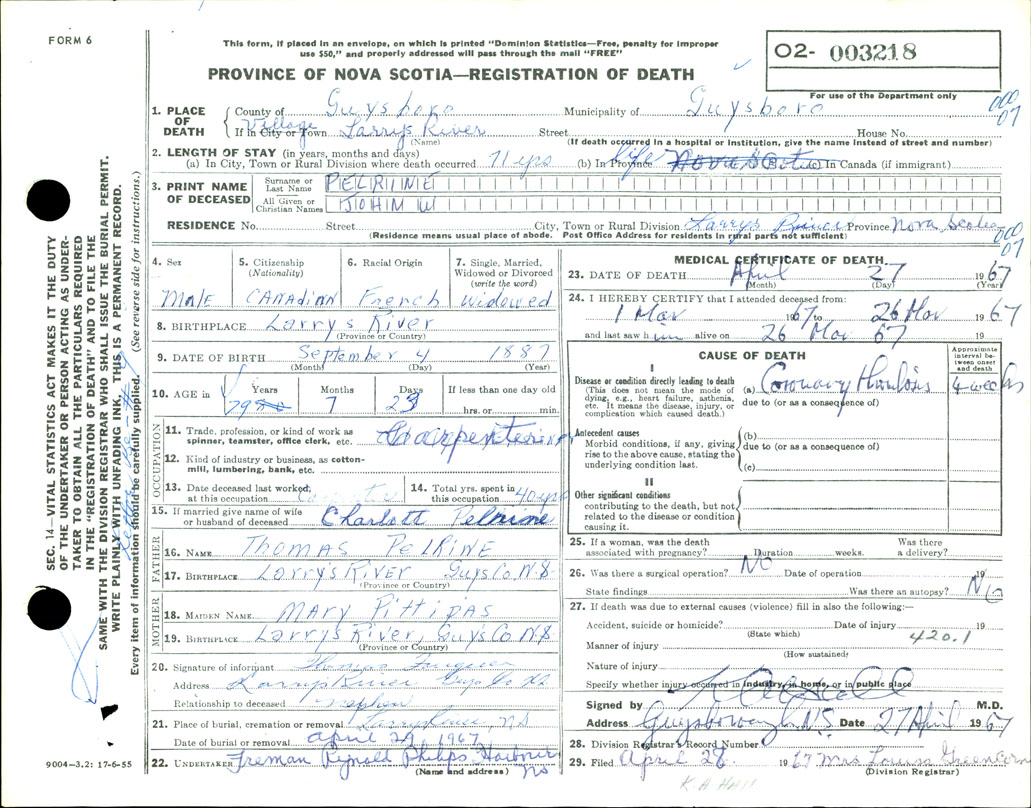 FORM 6
This form, if placed in an envelope, on which is printed "Dominion Statistics—Free, penalty for improper
use $50," and properly addressed will pass through the mail "FREE"
PROVINCE OF NOVA SCOTIA—REGISTRATION OF DEATH
02- 003218
For use of the Department only
000
07
1. PLACE OF DEATH
County of Guysboro Municipality of Guysboro
Village
If in City or Town Larrys River Street House No.
(Name) (If death occurred in a hospital or institution, give the name instead of street and number)
2. LENGTH OF STAY (in years, months and days)
(a) In City, Town or Rural Division where death occurred 71 yrs (b) In Province life Nova Scotia (c) In Canada (if immigrant)
3. PRINT NAME OF DECEASED
Surname or Last Name PELRINE
All Given or Christian Names JOHN W
RESIDENCE No. Street City, Town or Rural Division Larrys River Province Nova Scotia
(Residence means usual place of abode. Post Office Address for residents in rural parts not sufficient)
000
07
4. Sex Male
5. Citizenship (Nationality) Canadian
6. Racial Origin French
7. Single, Married, Widowed or Divorced (write the word) Widowed
8. BIRTHPLACE Larrys River
(Province or Country)
9. DATE OF BIRTH September 4 1887
(Month) (Day) (Year)
10. AGE in Years 79 Months 7 Days 23 If less than one day old
hrs. or min.
OCCUPATION
11. Trade, profession, or kind of work as spinner, teamster, office clerk, etc.
12. Kind of industry or business, as cotton-mill, lumbering, bank, etc.
13. Date deceased last worked at this occupation Carpenter
14. Total yrs. spent in this occupation 40 yrs
15. If married give name of wife or husband of deceased Charlott Pelrine
FATHER
16. NAME THOMAS PELRINE
17. BIRTHPLACE Larry's River Guys Co. N.S
(Province or Country)
MOTHER
18. MAIDEN NAME MARY PITTIPAS
19. BIRTHPLACE Larrys River, Guys Co N.S
(Province or Country)
20. Signature of informant Thomas
Address Larrys River Guys Co NS
Relationship to deceased nephew
21. Place of burial, cremation or removal Larrys River NS
Date of burial or removal april 29 1967
22. UNDERTAKER Freman Rynold Philips Harbour NS
(Name and address)
9004—3.2: 17-6-55
MEDICAL CERTIFICATE OF DEATH
23. DATE OF DEATH April 27 1967
(Month) (Day) (Year)
24. I HEREBY CERTIFY that I attended deceased from:
1 Mar 1967 to 26 Mar 1967
and last saw him alive on 26 Mar 67 19
CAUSE OF DEATH
Approximate interval between onset and death
I
Disease or condition directly leading to death
(This does not mean the mode of dying, e.g., heart failure, asthenia, etc. It means the disease, injury, or complication which caused death.)
(a) Coronary Thrombosis 4 weeks
due to (or as a consequence of)
Antecedent causes
Morbid conditions, if any, giving rise to the above cause, stating the underlying condition last.
(b)
due to (or as a consequence of)
(c)
II
Other significant conditions
contributing to the death, but not related to the disease or condition causing it.
25. If a woman, was the death associated with pregnancy? Duration weeks. Was there a delivery?
26. Was there a surgical operation? No Date of operation 19
State findings Was there an autopsy? No
27. If death was due to external causes (violence) fill in also the following:—
Accident, suicide or homicide? Date of injury 19
(State which)
420.1
Manner of injury
(How sustained)
Nature of injury
Specify whether injury occurred in industry, in home, or in public place
Signed by M.D.
Address Guysborough, N.S. Date 27 April 1967
28. Division Registrar's Record Number
29. Filed April 28 1967 Mrs Louisa
(Division Registrar)
SEC. 14—VITAL STATISTICS ACT MAKES IT THE DUTY
OF THE UNDERTAKER OR PERSON ACTING AS UNDER-
TAKER TO OBTAIN ALL THE PARTICULARS REQUIRED
IN THE "REGISTRATION OF DEATH" AND TO FILE THE
SAME WITH THE DIVISION REGISTRAR WHO SHALL ISSUE THE BURIAL PERMIT.
WRITE PLAINLY WITH UNFADING INK. THIS IS A PERMANENT RECORD.
Every item of information should be carefully supplied. (See reverse side for instructions.)